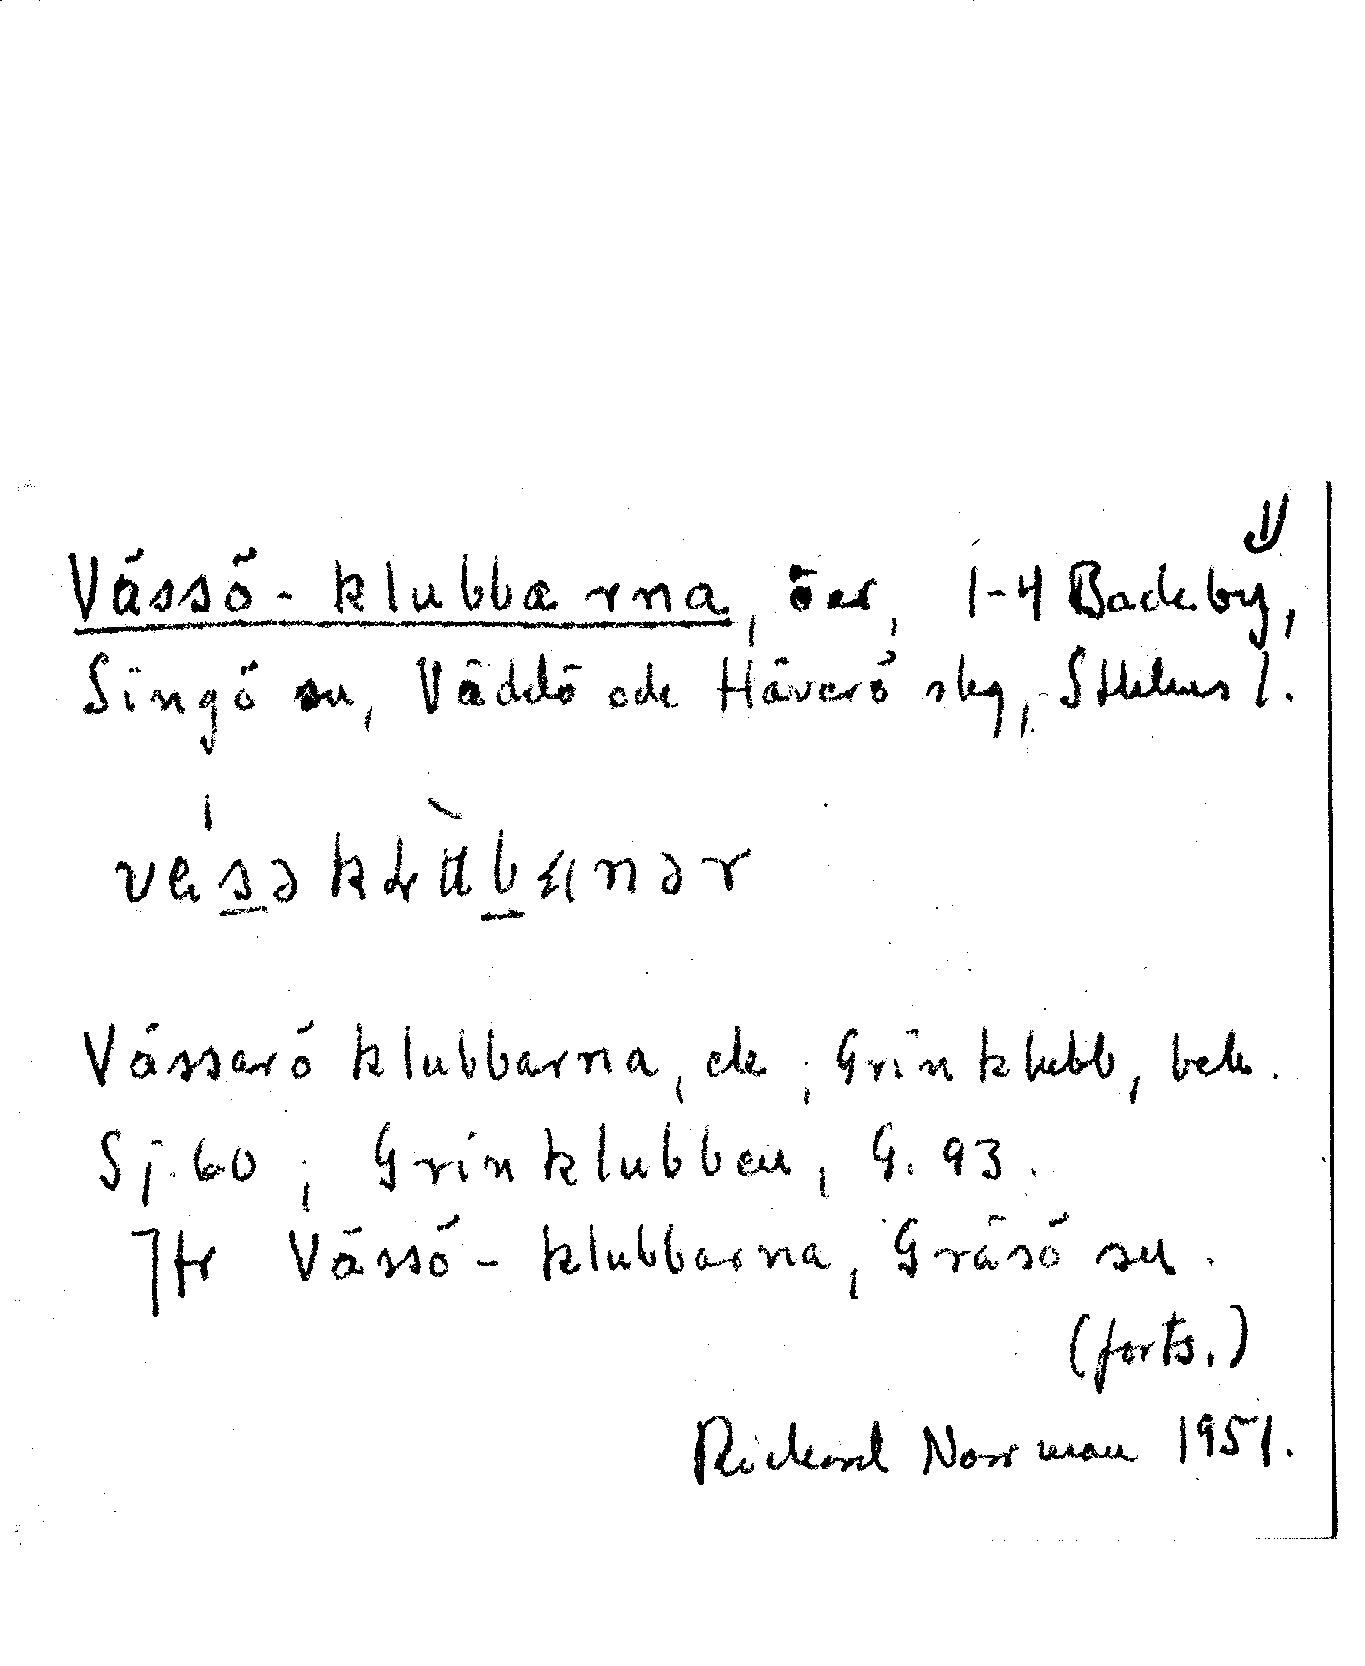 Vässö-klubbarna, öar, 1-4 Backby,
Singö sn, Väddö och Häverö skg, Sthlms l.
Vässarö klubbarna, ek; Grinklubb, bek.
Sj. 60; Grinklubben, G. 93.
Jfr Vässö-klubbarna, Gräsö sn.
(forts.)
Rickard Norrman 1951.